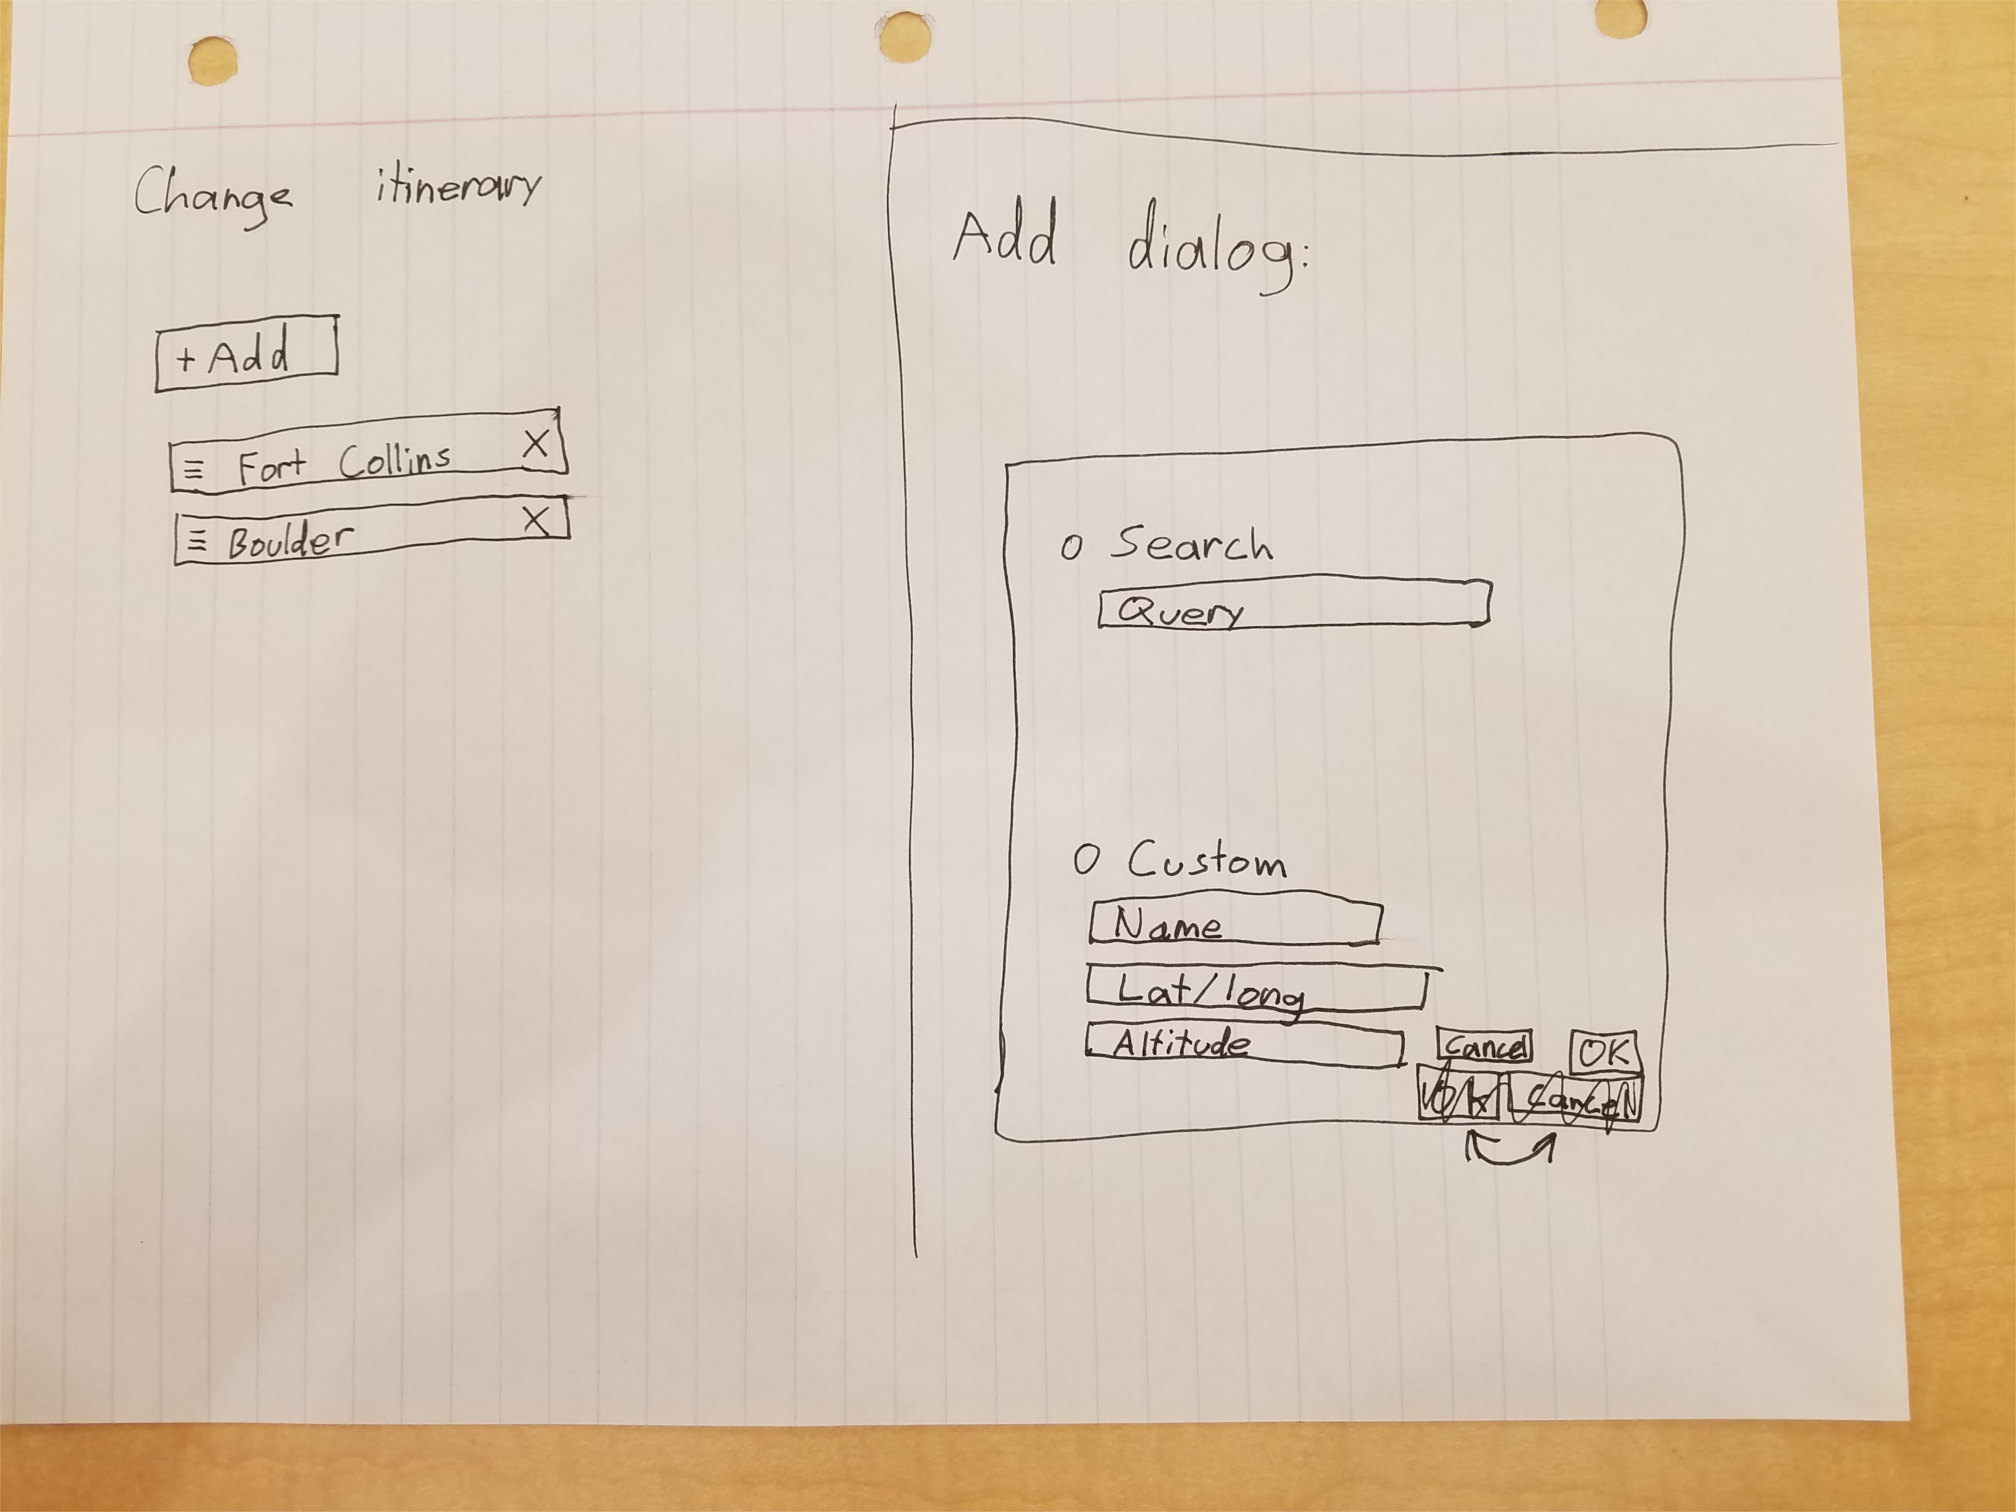 Change itinerary
+ Add
≡ Fort Collins X
≡ Boulder X
Add dialog:
O Search
Query
O Custom
Name
Lat/long
Altitude
Cancel OK
OK Cancel